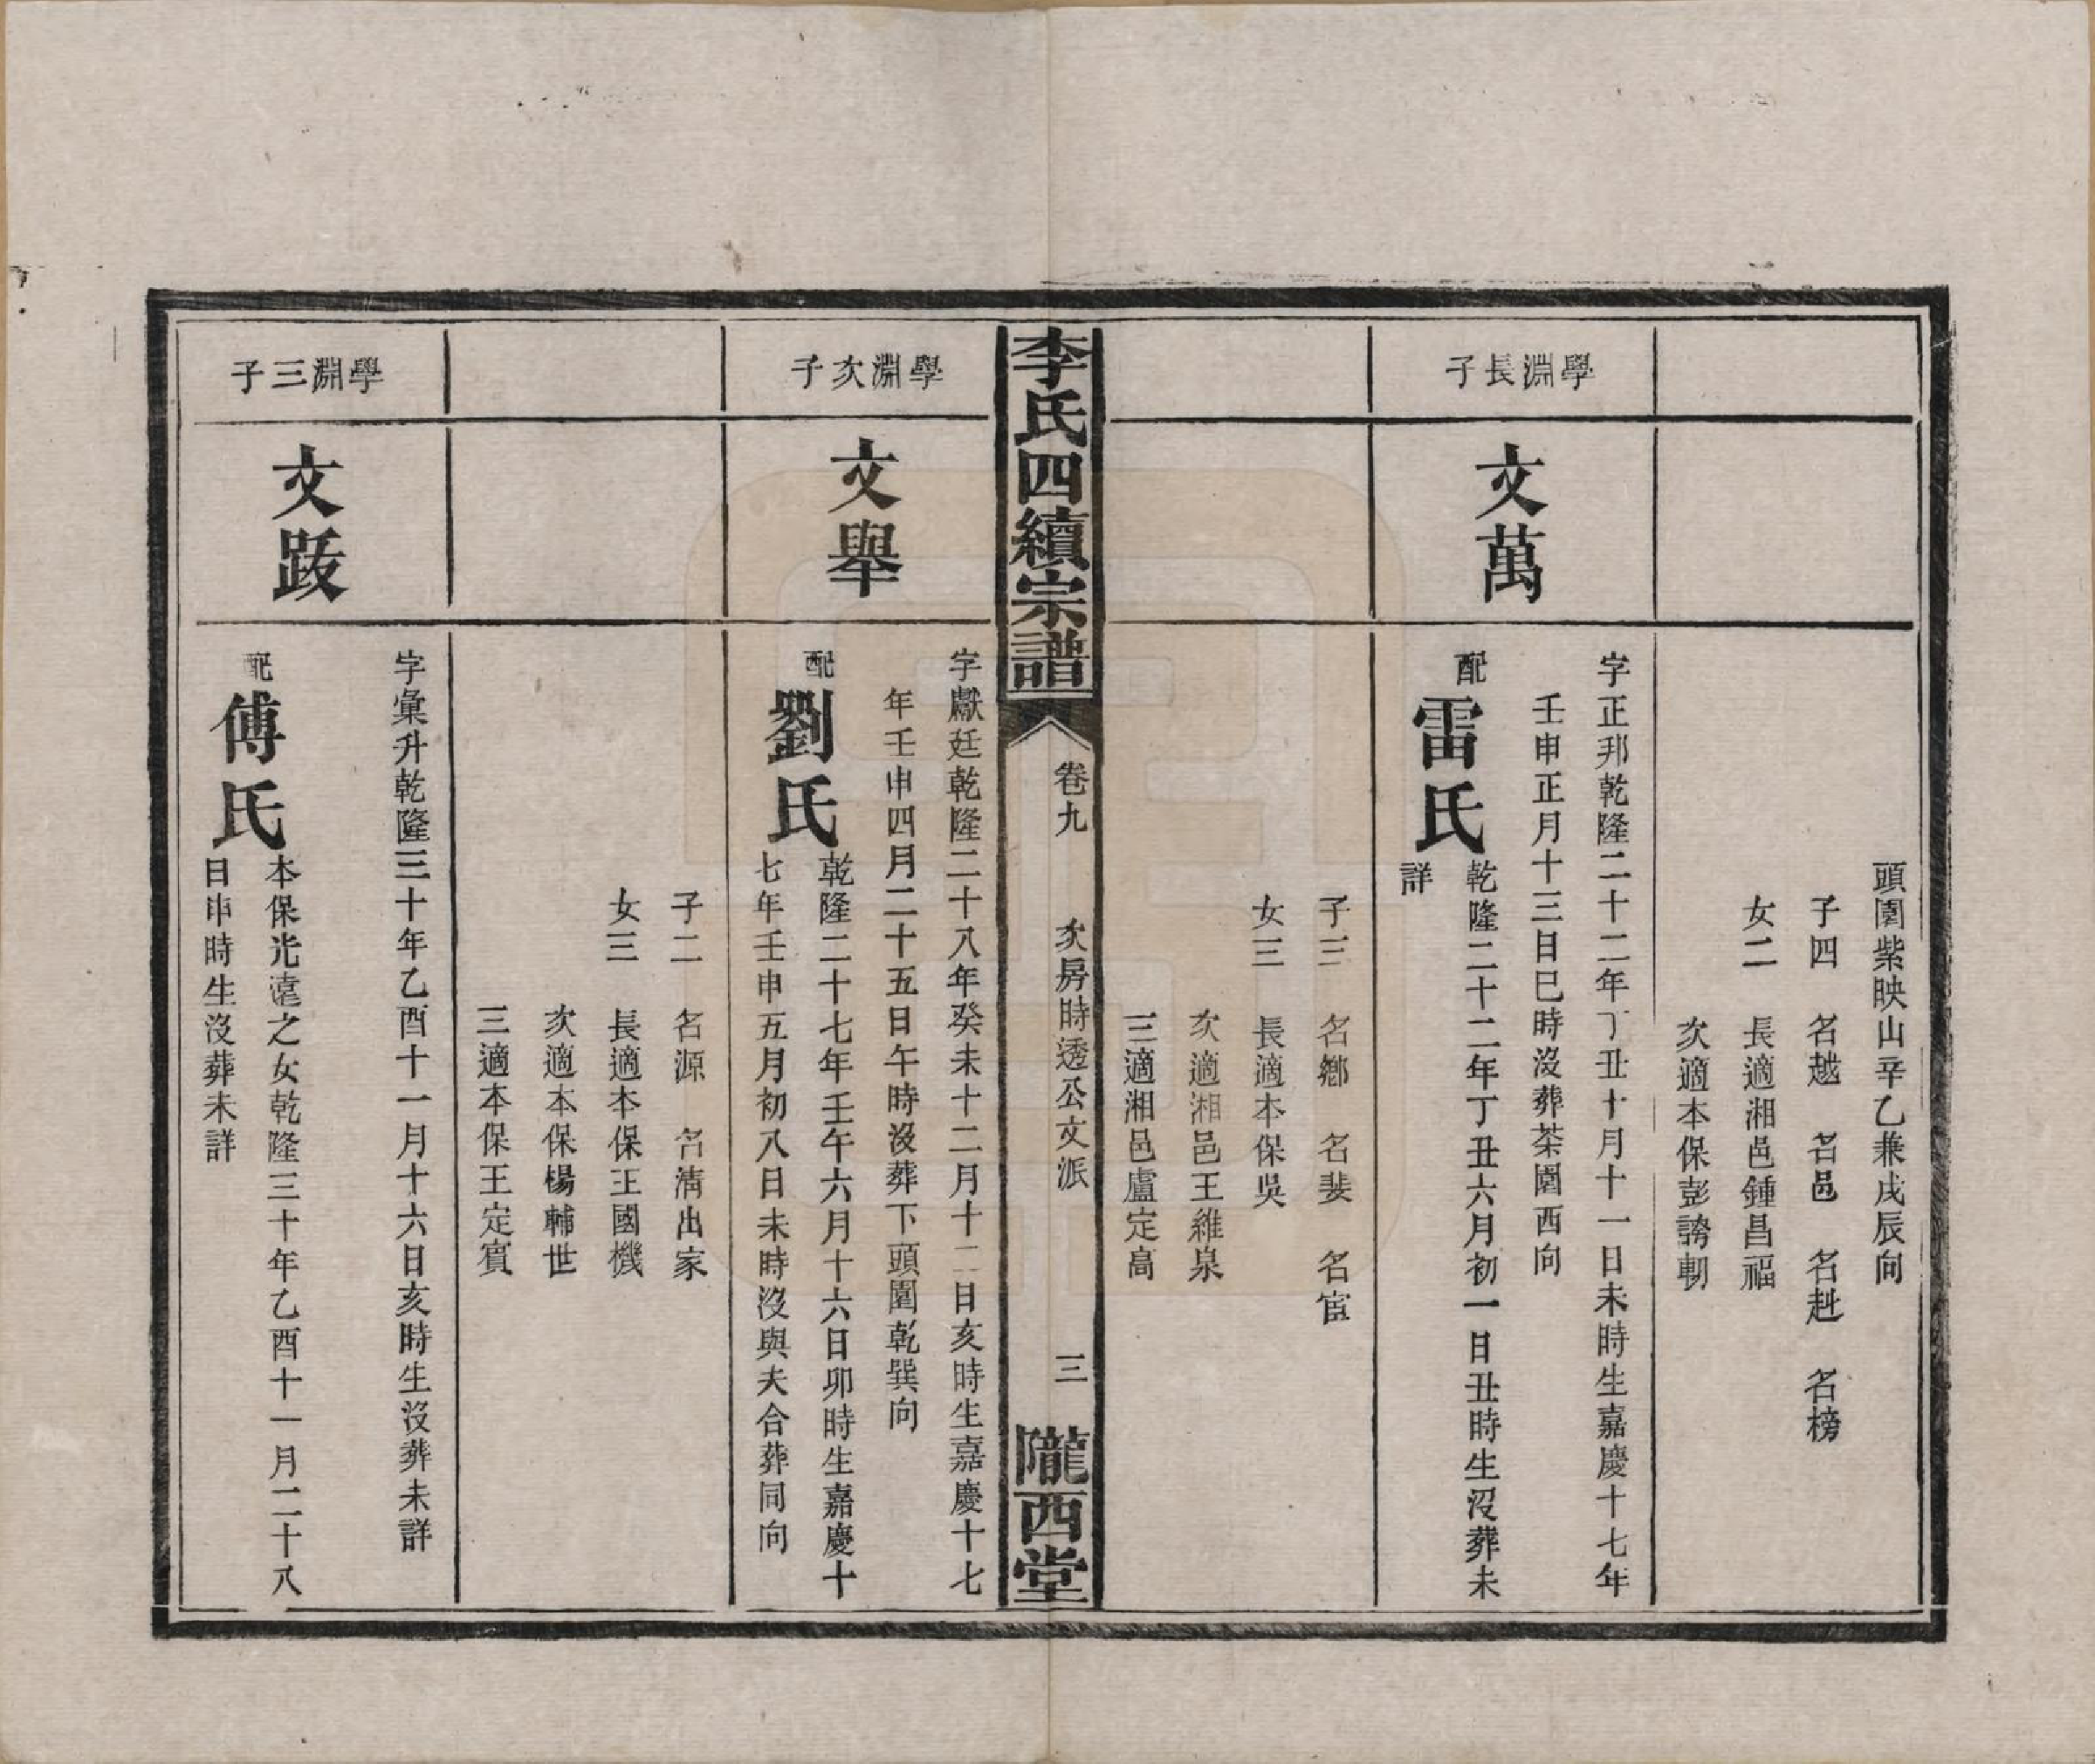 頭園紫映山辛乙兼戌辰向
子四　名越　名邑　名赸　名榜
女二　長適湘邑鍾昌福
次適本保彭誇朝
學淵長子
文萬
字正邦乾隆二十二年丁丑十月十一日未時生嘉慶十七年
壬申正月十三日巳時沒葬茶園酉向
配雷氏
乾隆二十二年丁丑六月初一日丑時生沒葬未
詳
子三　名鄉　名斐　名宦
女三　長適本保吳
次適湘邑王維泉
三適湘邑盧定高
李氏四續宗譜
卷九　次房時透公文派　三
隴西堂
學淵次子
文舉
字獻廷乾隆二十八年癸未十二月十二日亥時生嘉慶十七
年壬申四月二十五日午時沒葬下頭園乾巽向
配劉氏
乾隆二十七年壬午六月十六日卯時生嘉慶十
七年壬申五月初八日未時沒與夫合葬同向
子二　名源　名清出家
女三　長適本保王國機
次適本保楊輔世
三適本保王定賓
學淵三子
文䟦
字彙升乾隆三十年乙酉十一月十六日亥時生沒葬未詳
配傅氏
本保光遠之女乾隆三十年乙酉十一月二十八
日申時生沒葬未詳